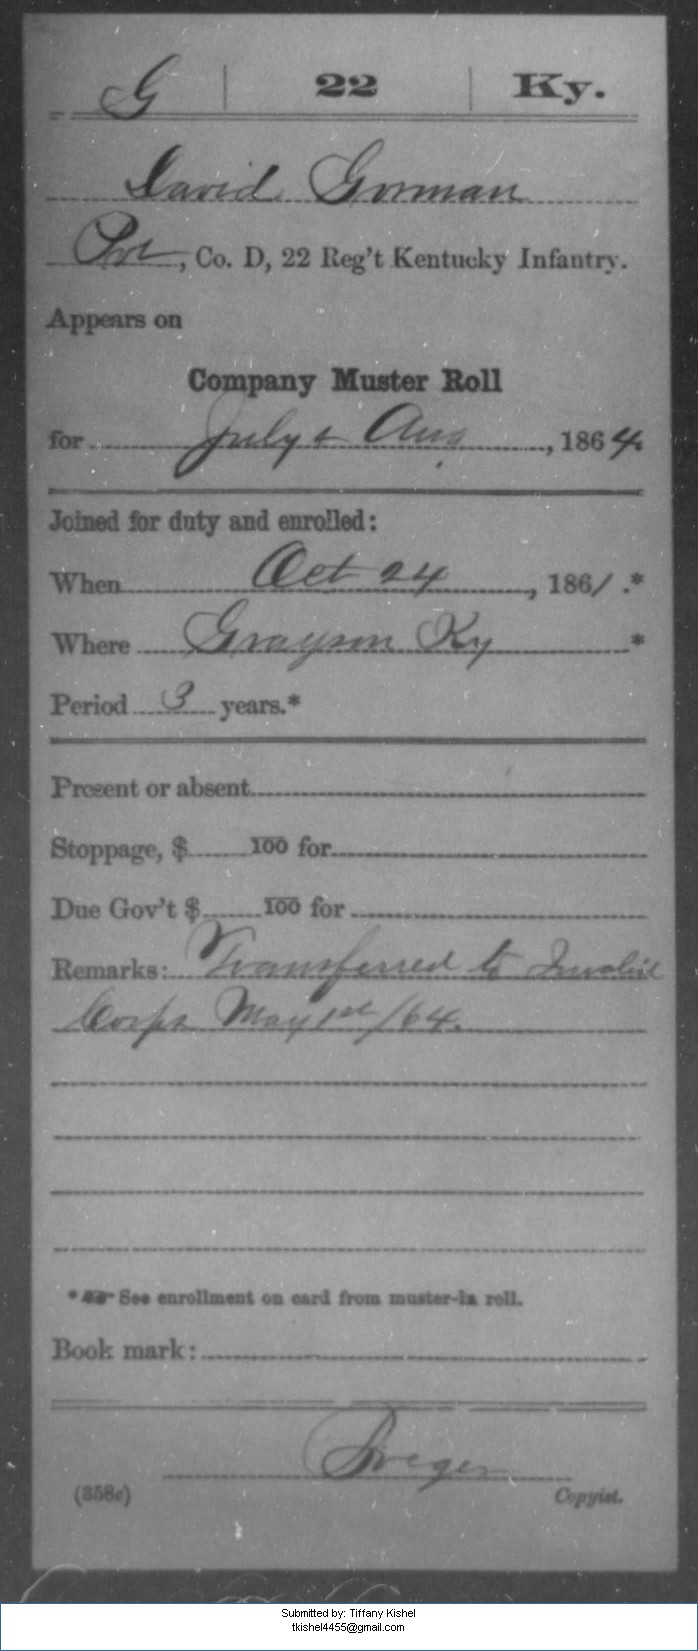 G | 22 | Ky.
David Gorman
Pvt, Co. D, 22 Reg't Kentucky Infantry.
Appears on
Company Muster Roll
for July & Aug, 1864.
Joined for duty and enrolled:
When Oct 24, 1861.*
Where Grayson Ky *
Period 3 years.*
Present or absent
Stoppage, $ 100 for
Due Gov't $ 100 for
Remarks: Transferred to Invalid
Corps May 1st/64.
* See enrollment on card from muster-in roll.
Book mark:
(358c) Copyist.
Submitted by: Tiffany Kishel
tkishel4455@gmail.com